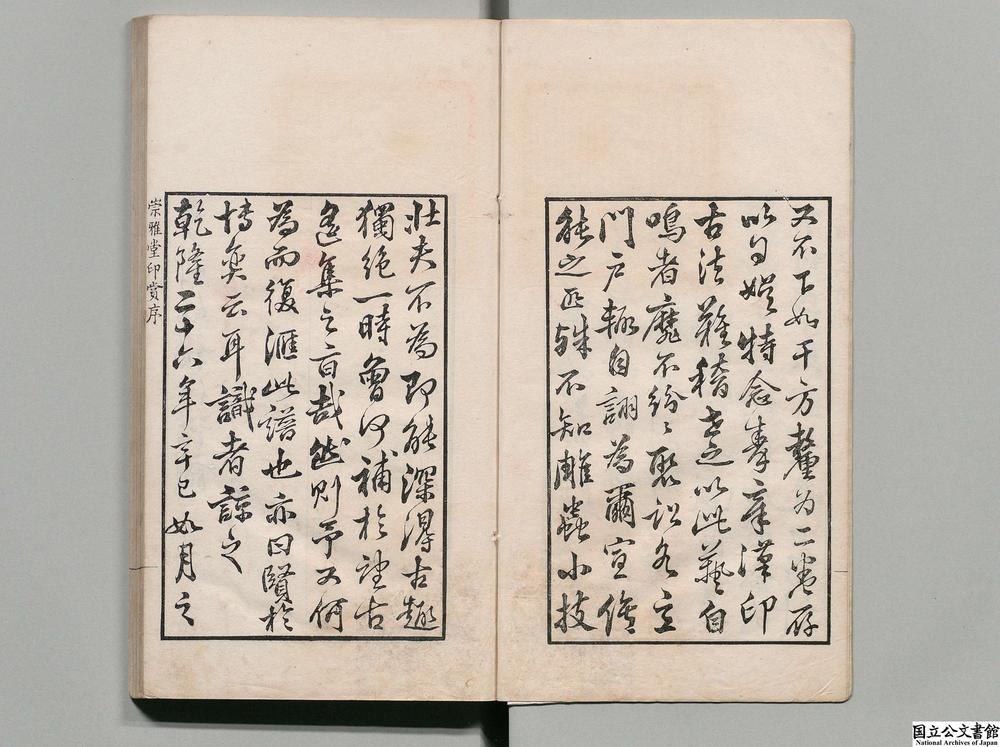 又不下如干方釐为二卷存
以自娱特念秦章漢印
古法難稽世之以此藝自
鳴者靡不紛〻聚訟各立
門户輒自詡為爾宣
能之匹殊不知雕蟲小技
壯夫不為即能深得古趣
獨絶一時曾何補於望古
遥集之旨哉然則予又何
為而復滙此譜也亦曰賢於
博奕云耳識者諒之
乾隆二十六年辛巳如月之
崇雅堂印賞序
国立公文書館
National Archives of Japan